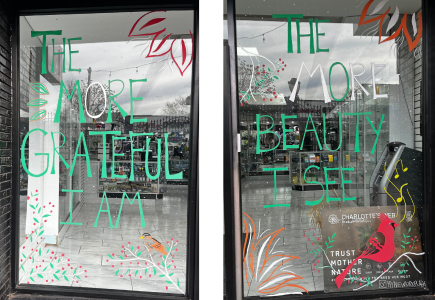 THE
MORE
GRATEFUL
I AM
THE
MORE
BEAUTY
I SEE
CHARLOTTE'S WEB
TRUST
MOTHER
NATURE